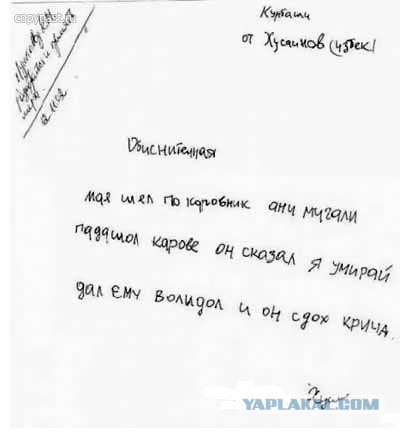 copypast.ru
Курбаши
от Хусаинов (узбек)
а мая
Обиснителная
мая шел по коровник ани мугали
падашол карове он сказал я умирай
дал ему волидол и он сдох крича.
YAPLAKAL.COM